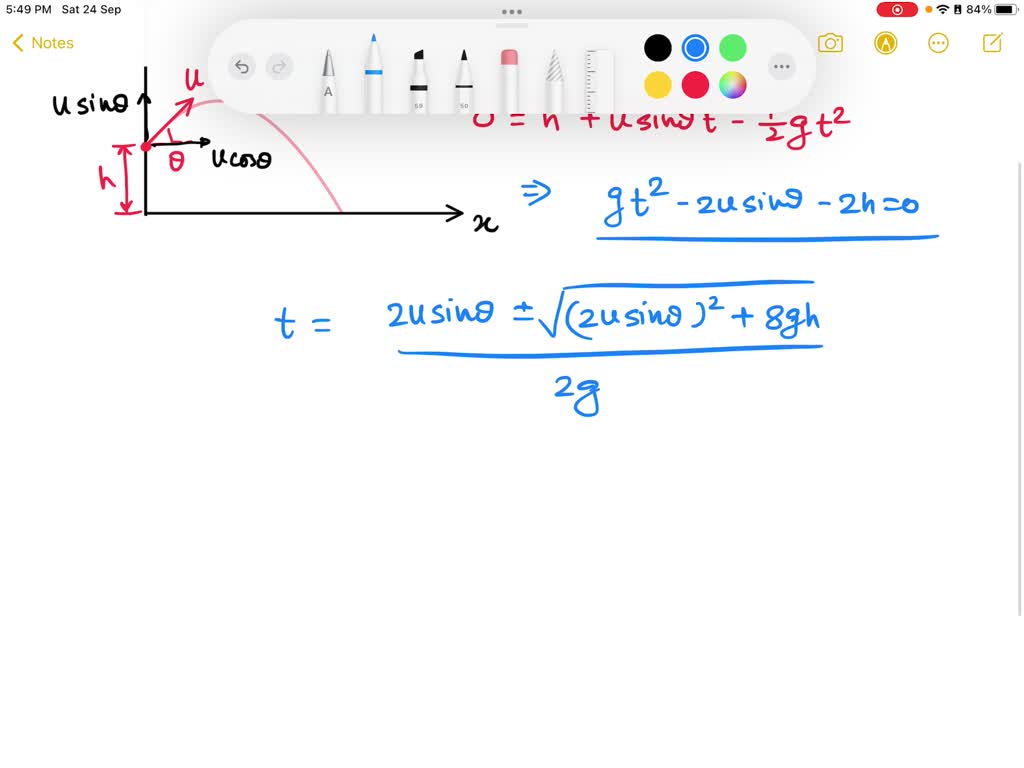 5:49 PM Sat 24 Sep 84%
Notes
A 50 50
u
u sinθ
θ u cosθ
h
x
0 = h + u sinθ t - 1/2 g t²
⇒ gt² - 2u sinθ - 2h = 0
t = 2u sinθ ± √(2u sinθ)² + 8gh
2g